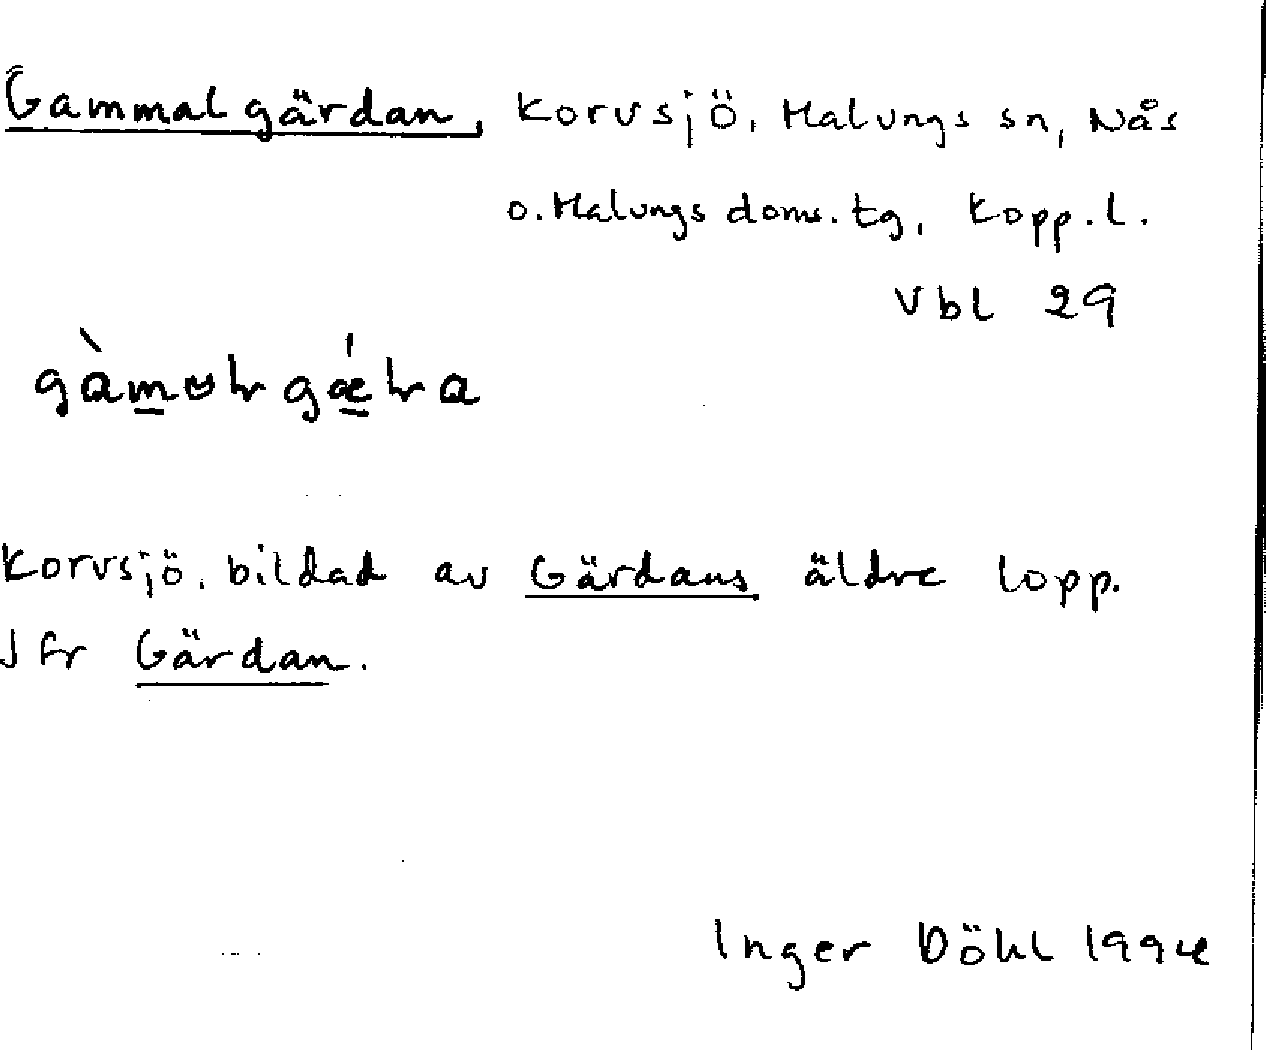 Gammalgärdan, Korvsjö, Malungs sn, Nås
o. Malungs doms. tg, Kopp. l.
Vbl 29
Korvsjö, bildad av Gärdans äldre lopp.
Jfr Gärdan.
Inger Döhl 1994